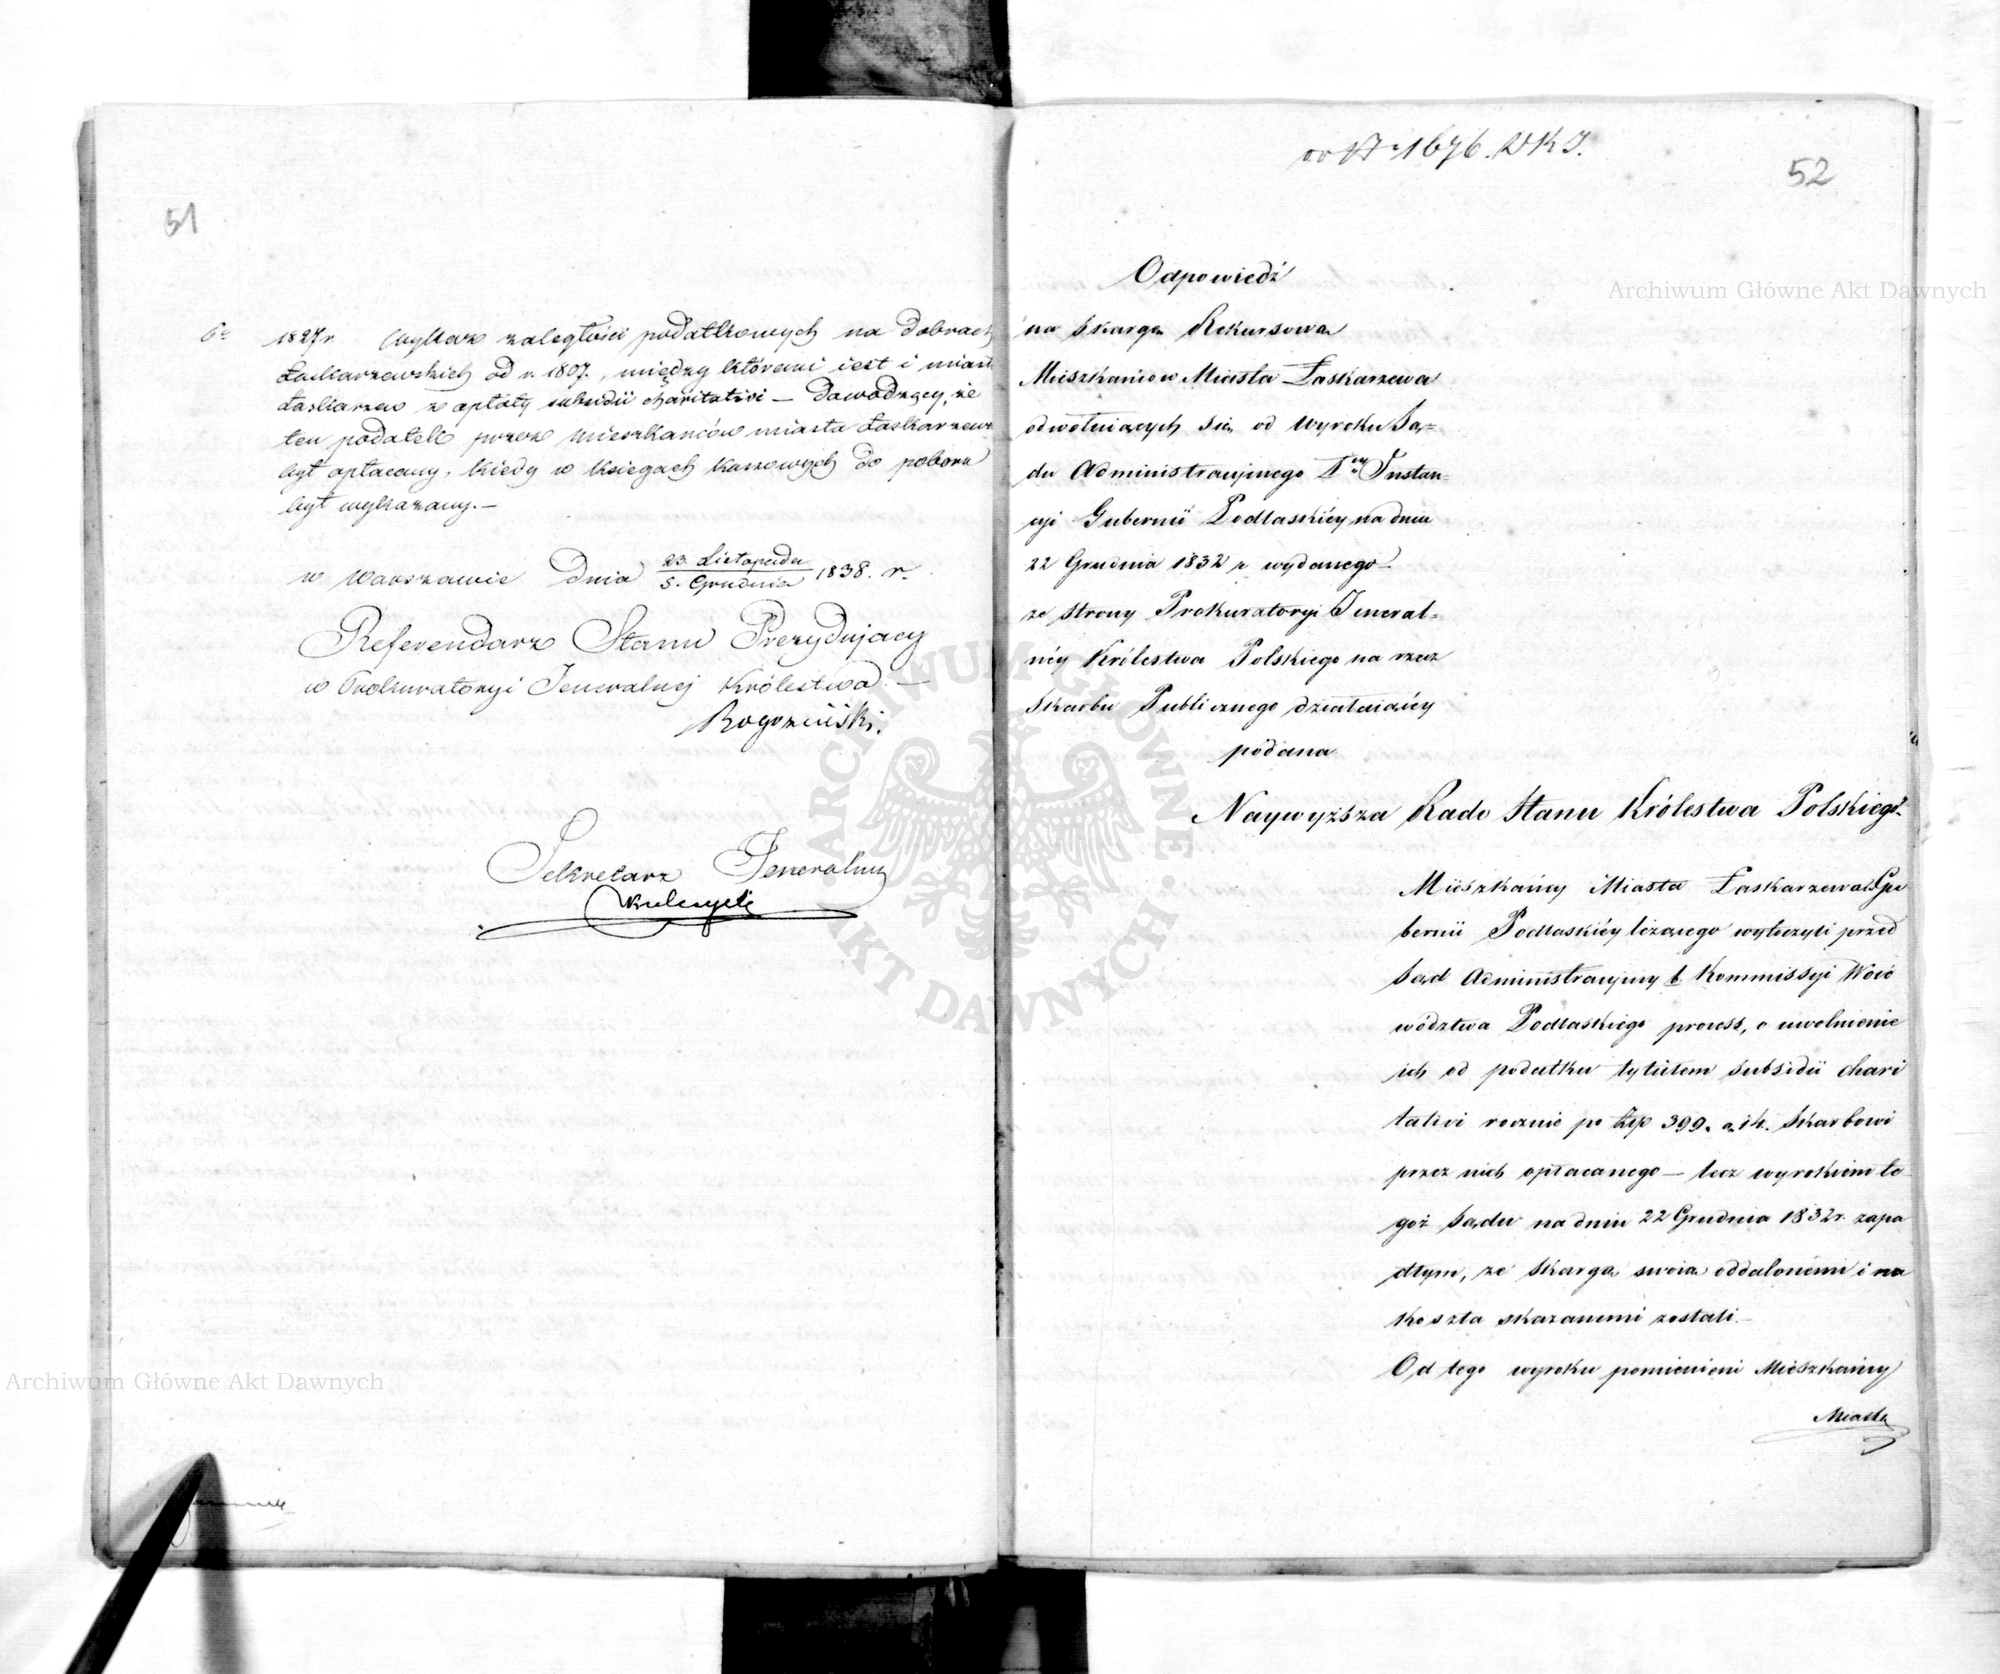 51
6º 1827 r. Wykaz zaległości podatkowych na dobrach
Łaskarzewskich od r. 1807, między któremi iest i miasto
Łaskarzew z opłaty subsidii charitativi — dowodzący, że
ten podatek przez mieszkańców miasta Łaskarzewa
był opłacany, kiedy w księgach kassowych do poboru
był wykazany. —
w Warszawie Dnia 23. Listopada / 5. Grudnia 1838. r.
Referendarz Stanu Prezydujący
w Prokuratoryi Jeneralnej Królestwa. —
Rogoziński.
Sekretarz Jeneralny
Kulczycki
52
1676. RKJ.
Odpowiedź
na skargę Rekursową
Mieszkańców Miasta Łaskarzewa
odwołuiących się od Wyroku Są=
du Administracyjnego Iey Instan=
cyi Gubernii Podlaskiéy na dniu
22 Grudnia 1832 r. wydanego
ze strony Prokuratoryi Jeneral=
néy Królestwa Polskiego na rzecz
Skarbu Publicznego działaiącéy
podana
Naywyższa Rado Stanu Królestwa Polskiego.
Mieszkańcy Miasta Łaskarzewa w Gu
bernii Podlaskiéy leżącego wytoczyli przed
Sąd Administracyjny b. Kommissyi Woie
wództwa Podlaskiego process, o uwolnienie
ich od podatku tytułem subsidii chari
tativi rocznie po Złp 399. g. 14. Skarbowi
przez nich opłacanego — lecz wyrokiem te
goż Sądu na dniu 22 Grudnia 1832 r. zapa
dłym, ze skargą swoią oddalonemi i na
koszta skazanemi zostali. —
Od tego wyroku pomienieni Mieszkańcy
Miasta
Archiwum Główne Akt Dawnych
Archiwum Główne Akt Dawnych
ARCHIWUM GŁÓWNE AKT DAWNYCH